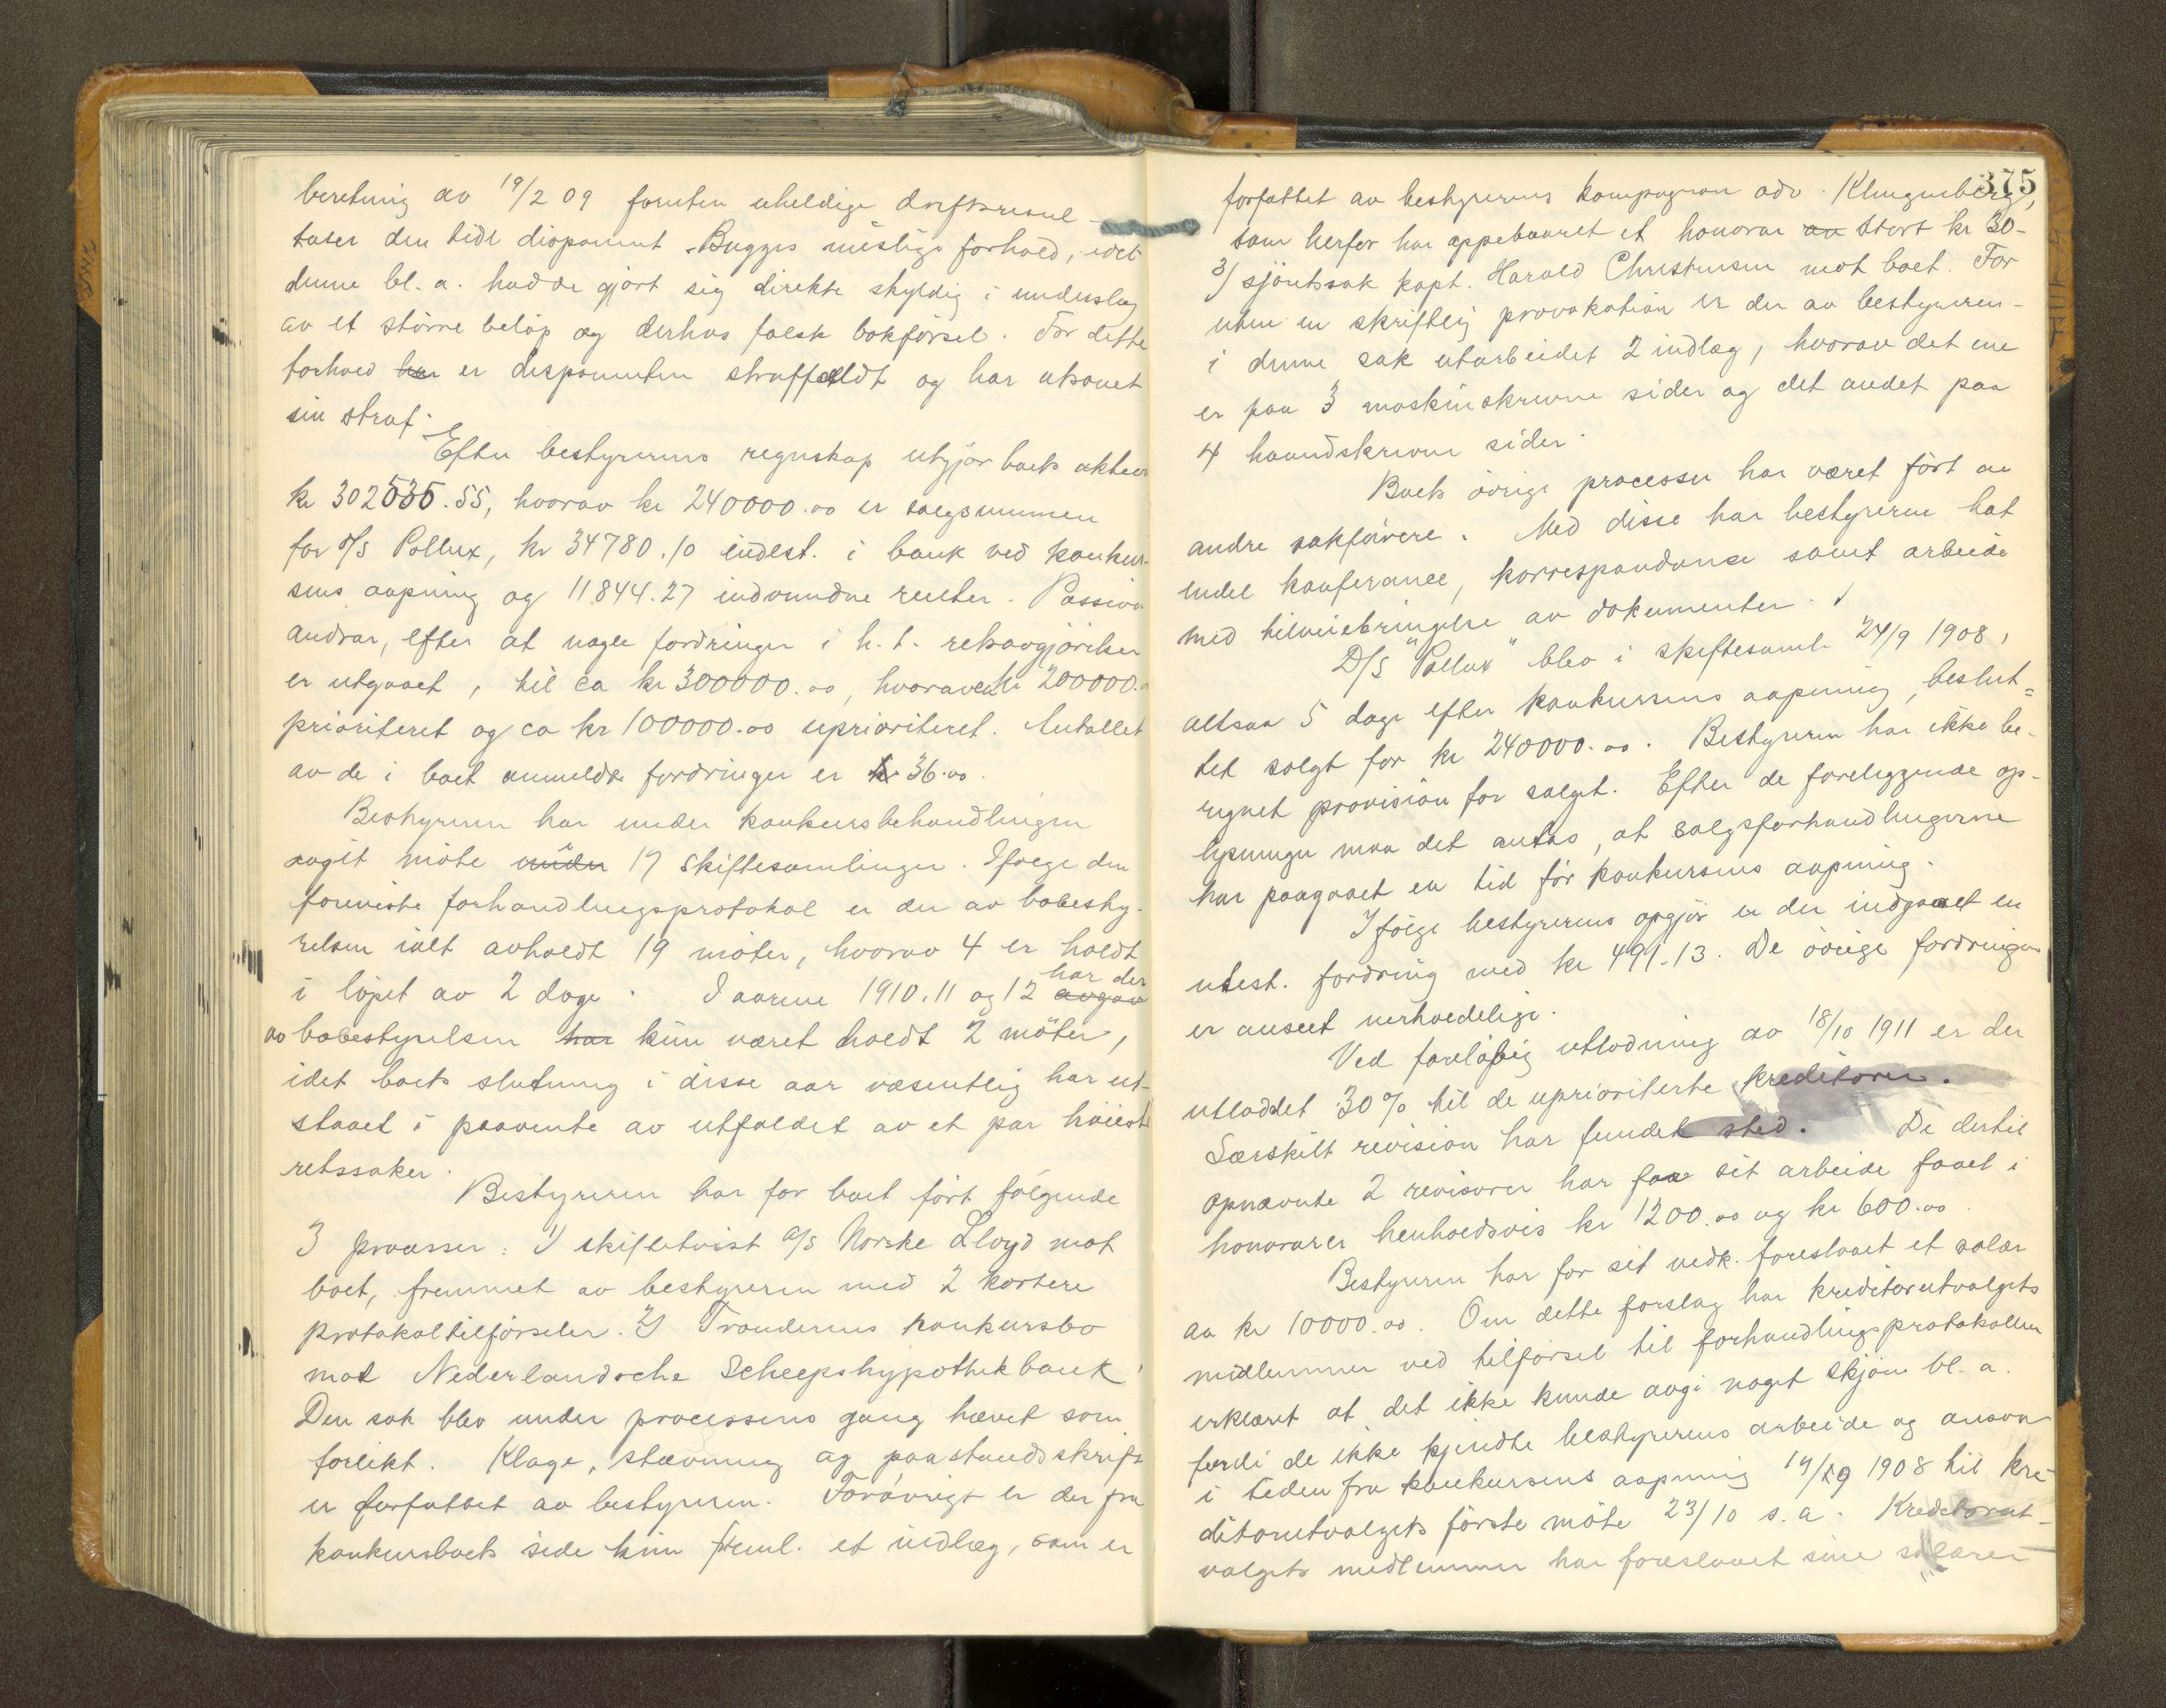 beretning av 19/2 09 foruten uheldige driftsresul-
tater den tidl disponent Bugges mislige forhold, idet
denne bl. a. hadde gjort sig direkte skyldig i underslag
av et större belöp og derhos falsk bokförsel. For dette
forhold har er disponenten straffældt og har utsonet
sin straf.
Efter bestyrerens regnskap utgjör boets aktiva
kr 302535.55, hvorav kr 240000.00 er salgsummen
for D/S Pollux, kr 34780.10 indest. i bank ved konkur-
sens aapning og 11844.27 indvundne renter. Passiva
andrar, efter at nogle fordringer i h. t. retsavgjörelser
er utgaaet, til ca kr 300000.00, hvorav ca kr 200000.00
prioritert og ca kr 100000.00 uprioriteret. Antallet
av de i boet anmeldte fordringer er kr 36.00.
Bestyreren har under konkursbehandlingen
avgit möte under i 17 skiftesamlinger. Ifölge den
foreviste forhandlingsprotokol er der av bobesty-
relsen ialt avholdt 19 möter, hvorav 4 er holdt
i löpet av 2 dage. I aarene 1910, 11 og 12 avgav har der
av bobestyrelsen har kun været holdt 2 möter,
idet boets slutning i disse aar væsentlig har ut-
staaet i paavente av utfaldet av et par höieste
retssaker.
Bestyreren har for boet fört fölgende
3 processer: 1) skiftetvist A/S Norske Lloyd mot
boet, fremmet av bestyreren med 2 kortere
protokoltilförseler. 2) Trondernes konkursbo
mot Nederlandsche Scheepshypothekbank
Den sak blev under processens gang hævet som
forlikt. Klage, stævning og paastandsskrift
er forfattet av bestyreren. Forövrigt er der fra
konkursboets side kun freml. et indlæg, som er
375
forfattet av bestyrerens kompagnon adv. Klingenberg,
som herfor har oppebaaret et honorar av stort kr 30-
3) sjöretssak kapt. Harald Christensen mot boet. For
uten en skriftlig provokation er der av bestyreren-
i denne sak utarbeidet 2 indlæg, hvorav det ene
er paa 3 maskinskrevne sider og det andet paa
4 haandskrevne sider.
Boets övrige processer har været fört av
andre sakförere. Med disse har bestyreren hat
endel konferance, korrespondanse samt arbeide
med tilveiebringelse av dokumenter.
D/S "Pollux" blev i skiftesaml. 24/9 1908,
altsaa 5 dage efter konkursens aapning, beslut=
tet solgt for kr 240000.00. Bestyreren har ikke be-
regnet provision for salget. Efter de foreliggende op-
lysninger maa det antas, at salgsforhandlingerne
har paagaaet en tid för konkursens aapning.
Ifölge bestyrerens opgjör er der indgaaet en
utest. fordring med kr 491.13. De övrige fordringer
er anseet værdilöse.
Ved foreløbig utlodning av 18/10 1911 er der
utloddet 30% til de uprioriterte kreditorer.
Særskilt revision har fundet sted. De dertil
opnævnte 2 revisorer har for sit arbeide faaet i
honorarer henholdsvis kr 1200.00 og kr 600.00
Bestyreren har for sit vedk. foreslaaet et salær
av kr 10000.00. Om dette forslag har kreditorutvalgets
medlemmer ved tilförsel til forhandlingsprotokollen
erklæret at det ikke kunde avgi noget skjön bl. a.
fordi de ikke kjendte bestyrerens arbeide og ansvar
i tiden fra konkursens aapning 19/9 1908 til kre-
ditorutvalgets förste möte 23/10 s. a. Kreditorut-
valgets medlemmer har foreslaaet sine salærer